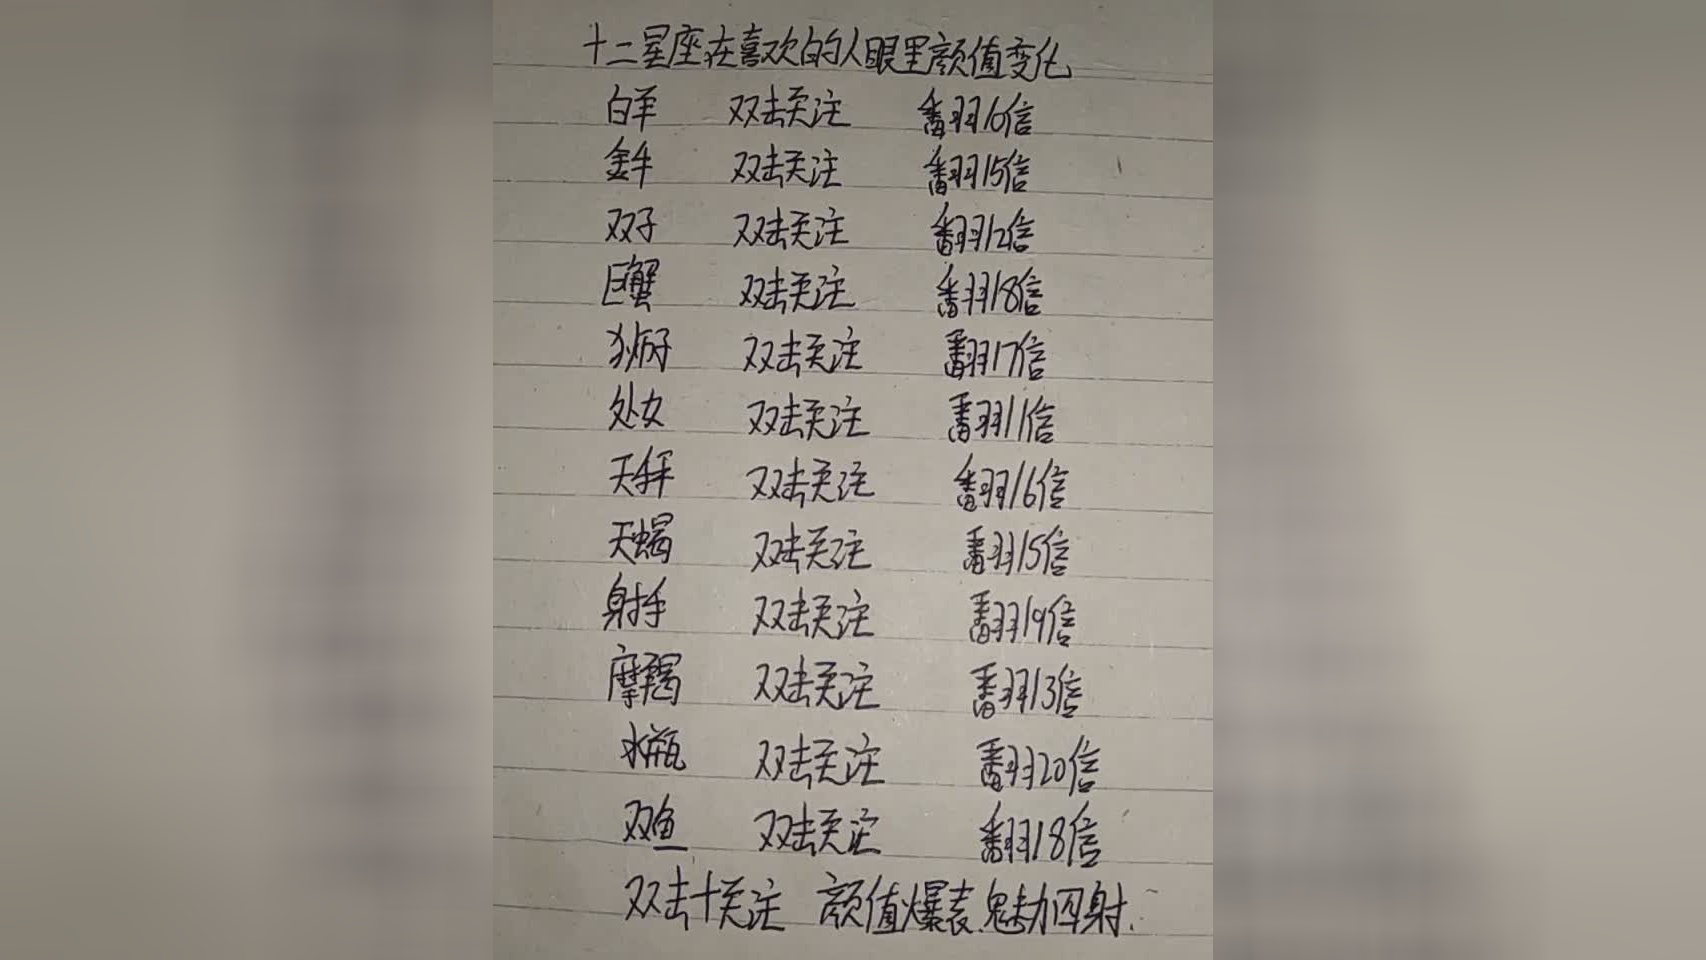 十二星座在喜欢的人眼里颜值变化
白羊 双击关注 翻10倍
金牛 双击关注 翻15倍
双子 双击关注 翻12倍
巨蟹 双击关注 翻18倍
狮子 双击关注 翻17倍
处女 双击关注 翻11倍
天秤 双击关注 翻16倍
天蝎 双击关注 翻15倍
射手 双击关注 翻19倍
摩羯 双击关注 翻13倍
水瓶 双击关注 翻20倍
双鱼 双击关注 翻18倍
双击十关注 颜值爆表.魅力四射.